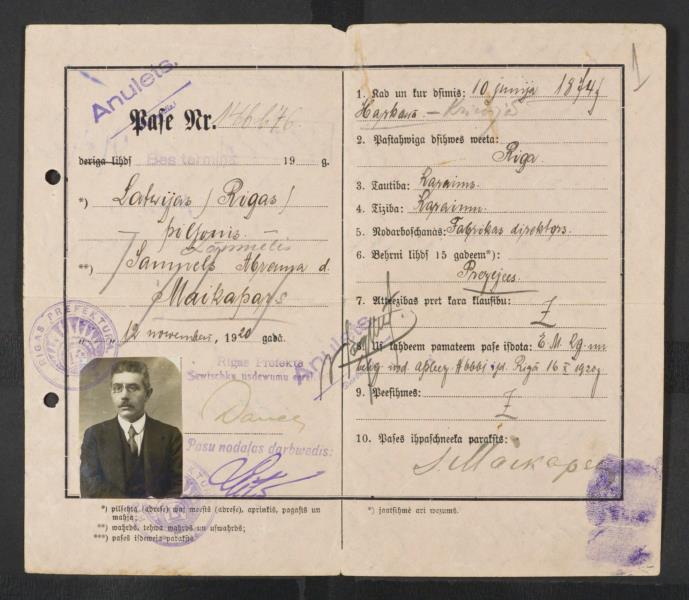 Anulets.
Pase Nr. 146676
deriga lihds Bes termiņa 19 g.
*) Latwijas / Rigas /
pilsonis.
**) Samuels Abrama d.
Maikapars
12 novemberi, 1920 gadā.
RIGAS PREFEKTURA
Rigas Prefekta
Sewischku usdewumu
Pasu nodaļas darbwedis:
*) pilsehta (adrese) wai meests (adrese), aprinķis, pagasts un
mahja;
**) wahrds, tehwa wahrds un uswahrds;
***) pases isdeweja paraksts.
1
1. Kad un kur dsimis: 10 junijā 1874 g
Harkawā – Krievijā
2. Pastahwiga dsihwes weeta:
Rigā.
3. Tautiba: Karaims.
4. Tiziba: Karaimu
5. Nodarboschanās: Fabrikas direktors.
6. Behrni lihds 15 gadeem*):
Prezejees.
7. Atteezibas pret kara klausibu:
Z
Anulets.
8. Us kahdeem pamateem pase isdota: E. M. 29. un
Rigā 16 X 1920 g
9. Peesihmes:
Z
10. Pases ihpaschneeka paraksts:
S. Maikapar
*) jaatsihmē arī wezums.